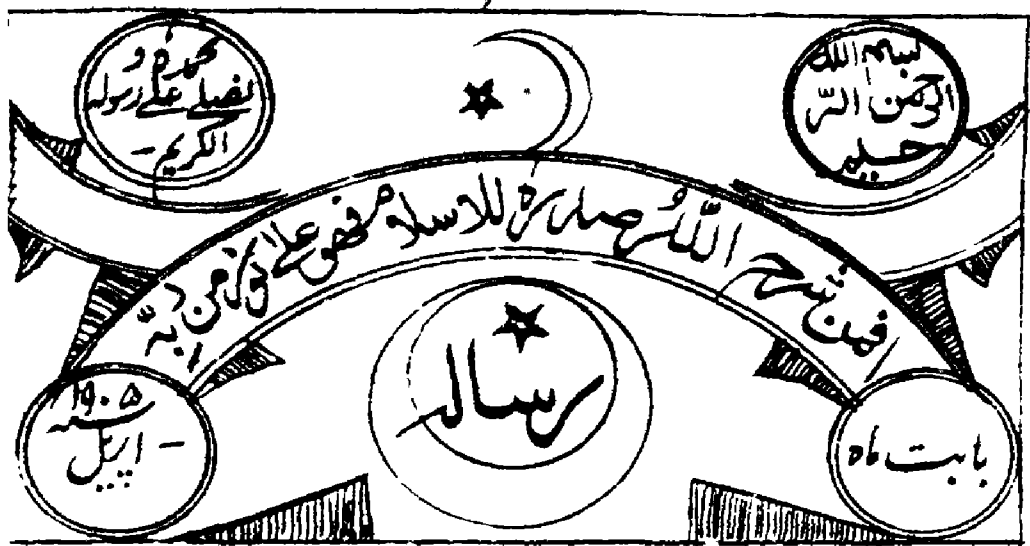 بسم الله
الرحمن الر
حیم
نحمده و
نصلے علے رسوله
الکریم -
فمن شرح اللّٰه صدره للاسلام فهو علیٰ نور من ربه
رساله
بابت ماه
اپریل -
سنه ۱۹۰۵